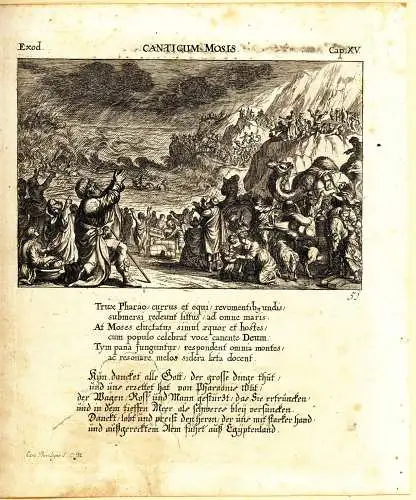 Exod.
CANTICUM MOSIS
Cap. XV
51
Trux Pharao, currus et equi, revomentib9 undis,
submersi redeunt littus, ad omne maris.
At Moses eluctatus simul æquor et hostes,
cum populo celebrat voce canente Deum.
Tympana junguntur, respondent omnia montes,
ac resonare melos sidera læta docent.
Nun dancket alle Gott, der grosse dinge thüt,
und uns errettet hat von Pharaonis Wüt,
der Wagen, Roß und Mann gestürtzt, das Sie ertruncken,
und in dem tieffen Meer als schweres bley versuncken.
Danckt, lobt und preist den herrn, der uns mit starcker hand
und außgerecktem Arm führt auß Egyptenland.